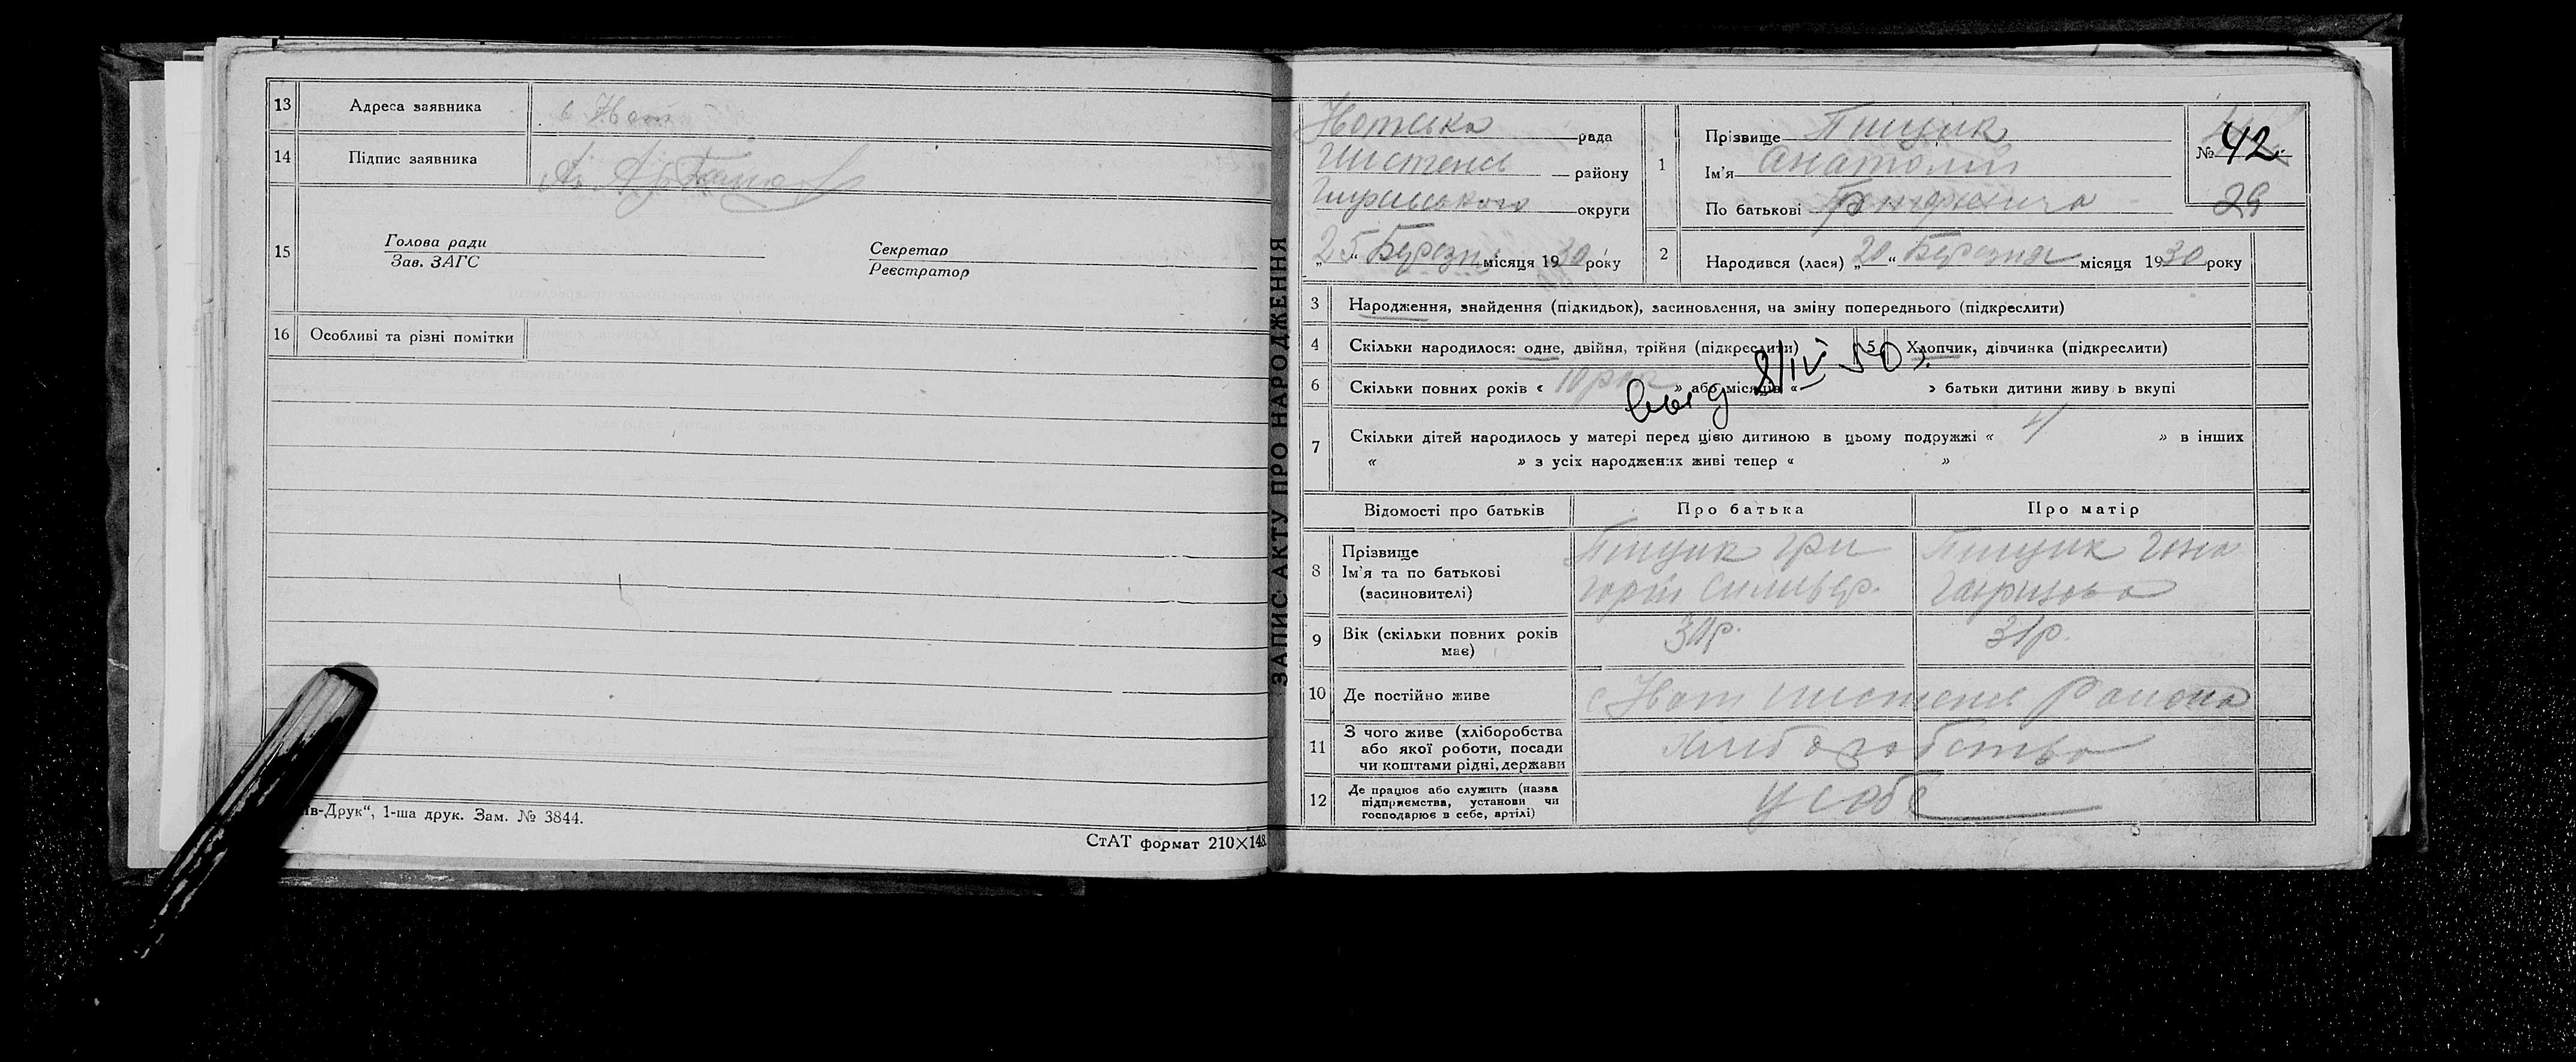 13 Адреса заявника с Хот
14 Підпис заявника
15 Голова ради Секретар
Зав. ЗАГС Реєстратор
16 Особливі та різні помітки
в-Друк“, 1-ша друк. Зам. № 3844.
СтАТ формат 210×148
ЗАПИС АКТУ ПРО НАРОДЖЕННЯ
рада
району
округи
„25“ Березня місяця 1930 року
1 Прізвище Пищик
Ім'я Анатолий
По батькові
№ 42.
29
2 Народився (лася) „20“ Березня місяця 1930 року
3 Народження, знайдення (підкидьок), засиновлення, на зміну попереднього (підкреслити)
4 Скільки народилося: одне, двійня, трійня (підкреслити) 5 Хлопчик, дівчинка (підкреслити)
8/IV 50 г.
6 Скільки повних років « 10 рок » або місяців « » батьки дитини живу ь вкупі
7 Скільки дітей народилось у матері перед цією дитиною в цьому подружжі « 4 » в інших
« » з усіх народжених живі тепер « »
Відомості про батьків Про батька Про матір
8 Прізвище
Ім'я та по батькові
(засиновителі)
Пищик Гри
горій Сильвер.
Пищик
9 Вік (скільки повних років
має)
31р.
10 Де постійно живе с Хот района
11 З чого живе (хліборобства
або якої роботи, посади
чи коштами рідні, держави
хлиборобство
12 Де працює або служить (назва
підприємства, установи чи
господарює в себе, артілі)
у себе